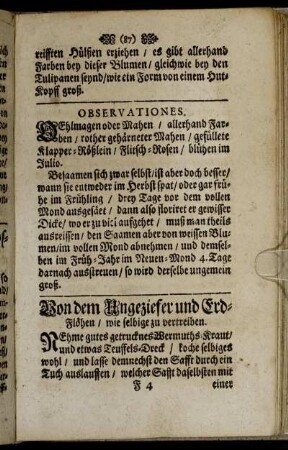 (87)
reifften Hülßen erziehen / es gibt allerhand
Farben bey dieser Blumen / gleichwie bey den
Tulipanen seynd / wie ein Form von einem Hut-
Kopff groß.
OBSERVATIONES.
OEhlmagen oder Mahen / allerhand Far-
ben / rother gehärneter Mahen / gefüllete
Klapper-Rößlein / Flitsch-Rosen / blühen im
Julio.
Besaamen sich zwar selbst / ist aber doch besser /
wann sie entweder im Herbst spat / oder gar frü-
he im Frühling / drey Tage vor dem vollen
Mond ausgesäet / dann also floriret er gewisser
Dicke / wo er zu viel aufgehet / muß man theils
ausreissen / den Saamen aber von weissen Blu-
men / im vollen Mond abnehmen / und demsel-
ben im Früh-Jahr im Neuen-Mond 4. Tage
darnach ausstreuen / so wird derselbe ungemein
groß.
Von dem Ungeziefer und Erd-
Flöhen / wie selbige zu vertreiben.
NEhme gutes getrucknes Wermuths-Kraut /
und etwas Truffels-Dreck / koche selbiges
wohl / und lasse demnechst den Safft durch ein
Tuch auslauffen / welcher Safft daselbsten mit
F 4 einer